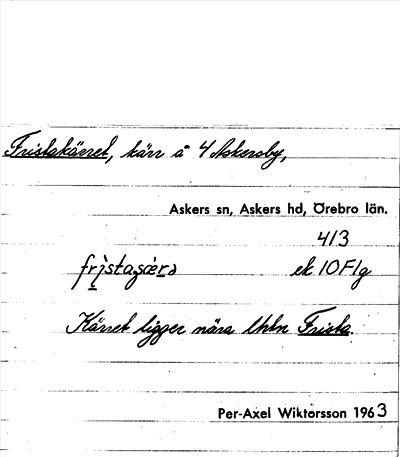 Fristakärret, kärr å 4 Askersby,
Askers sn, Askers hd, Örebro län.
413
ek 10F1g
Kärret ligger nära Frista.
Per-Axel Wiktorsson 1963